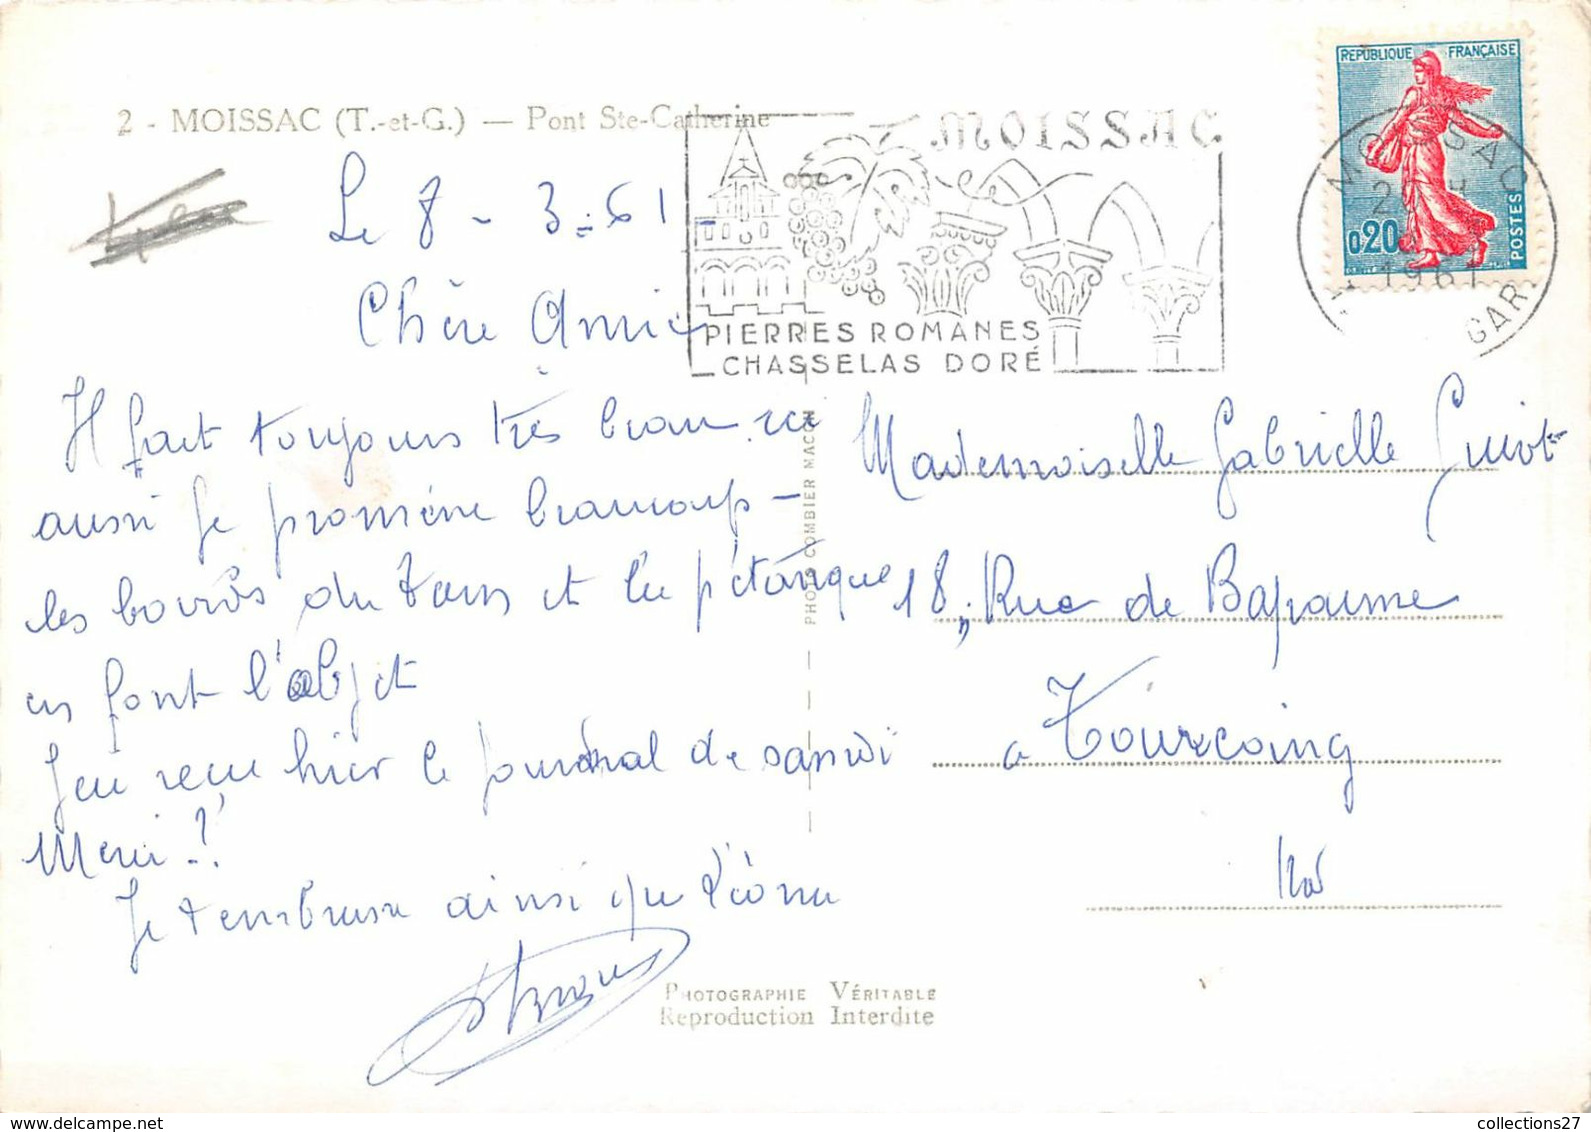 2 - MOISSAC (T.-et-G.) — Pont Ste-Catherine
MOISSAC
PIERRES ROMANES
CHASSELAS DORÉ
REPUBLIQUE FRANÇAISE
0,20
POSTES
MOISSAC
1961
GAR
Le 8 - 3-61
Chère Amie
Il fait toujours très beau ici
aussi je promène beaucoup -
les bords du Tarn et la pétanque
en font l'objet
J'ai reçu hier le journal de samedi
Merci !
Je t'embrasse ainsi que
PHOTO COMBIER MACON
Mademoiselle Gabrielle Guiot
18, Rue de Bapaume
a Tourcoing
Nord
PHOTOGRAPHIE VÉRITABLE
Reproduction Interdite
collections27